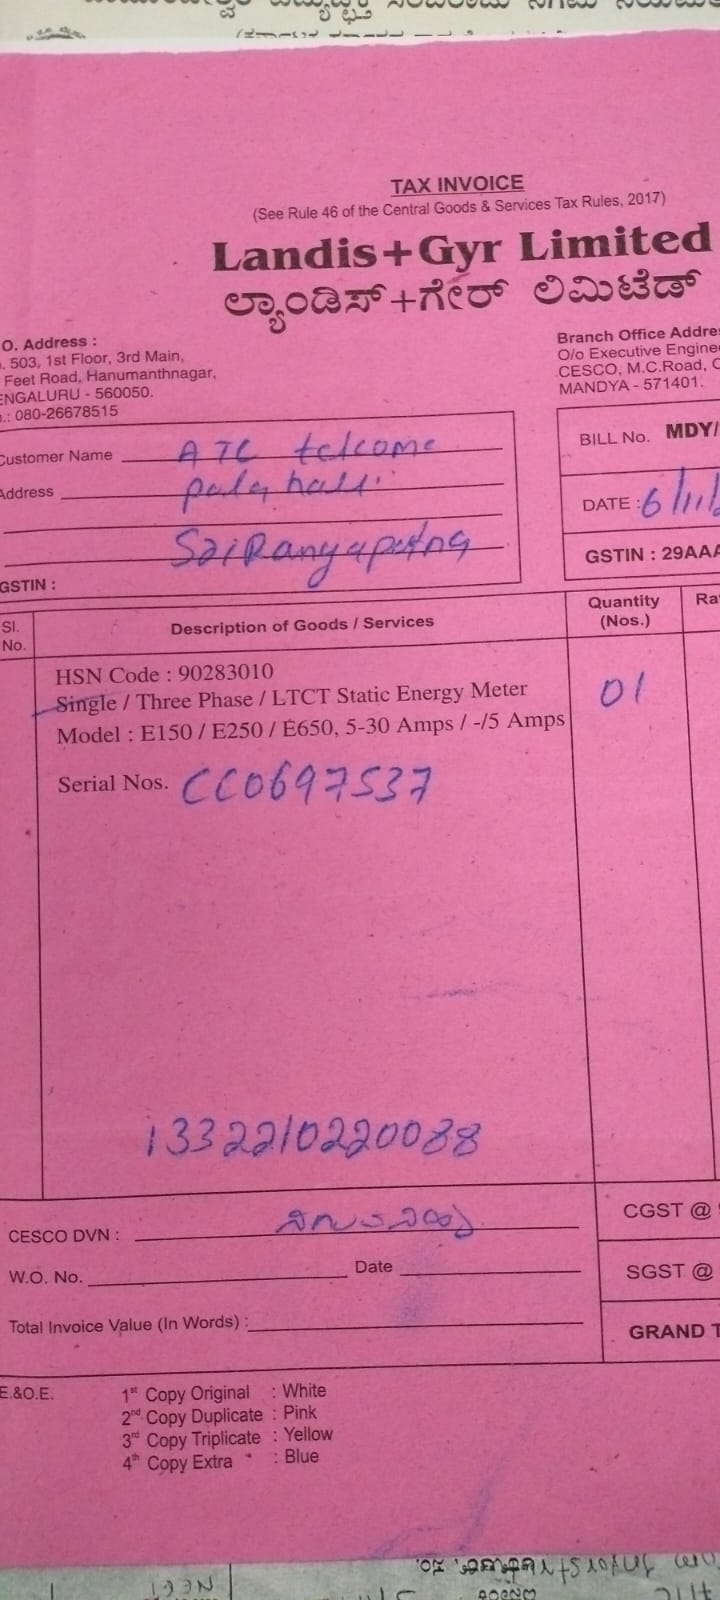 TAX INVOICE
(See Rule 46 of the Central Goods & Services Tax Rules, 2017)
Landis+Gyr Limited
ಲ್ಯಾಂಡಿಸ್+ಗೇರ್ ಲಿಮಿಟೆಡ್
O. Address :
503, 1st Floor, 3rd Main,
Feet Road, Hanumanthnagar,
ENGALURU - 560050.
.: 080-26678515
Branch Office Addre
O/o Executive Engine
CESCO, M.C.Road, C
MANDYA - 571401.
Customer Name ATC telcome
Address palahalli
SriRangapatna
GSTIN :
BILL No. MDY/
DATE : 6/11/
GSTIN : 29AAA
Sl. No. Description of Goods / Services Quantity (Nos.) Ra
HSN Code : 90283010
Single / Three Phase / LTCT Static Energy Meter 01
Model : E150 / E250 / E650, 5-30 Amps / -/5 Amps
Serial Nos. CC0697537
1332210220088
CESCO DVN :
W.O. No. Date
Total Invoice Value (In Words) :
CGST @
SGST @
GRAND T
E.&O.E.
1st Copy Original : White
2nd Copy Duplicate : Pink
3rd Copy Triplicate : Yellow
4th Copy Extra : Blue